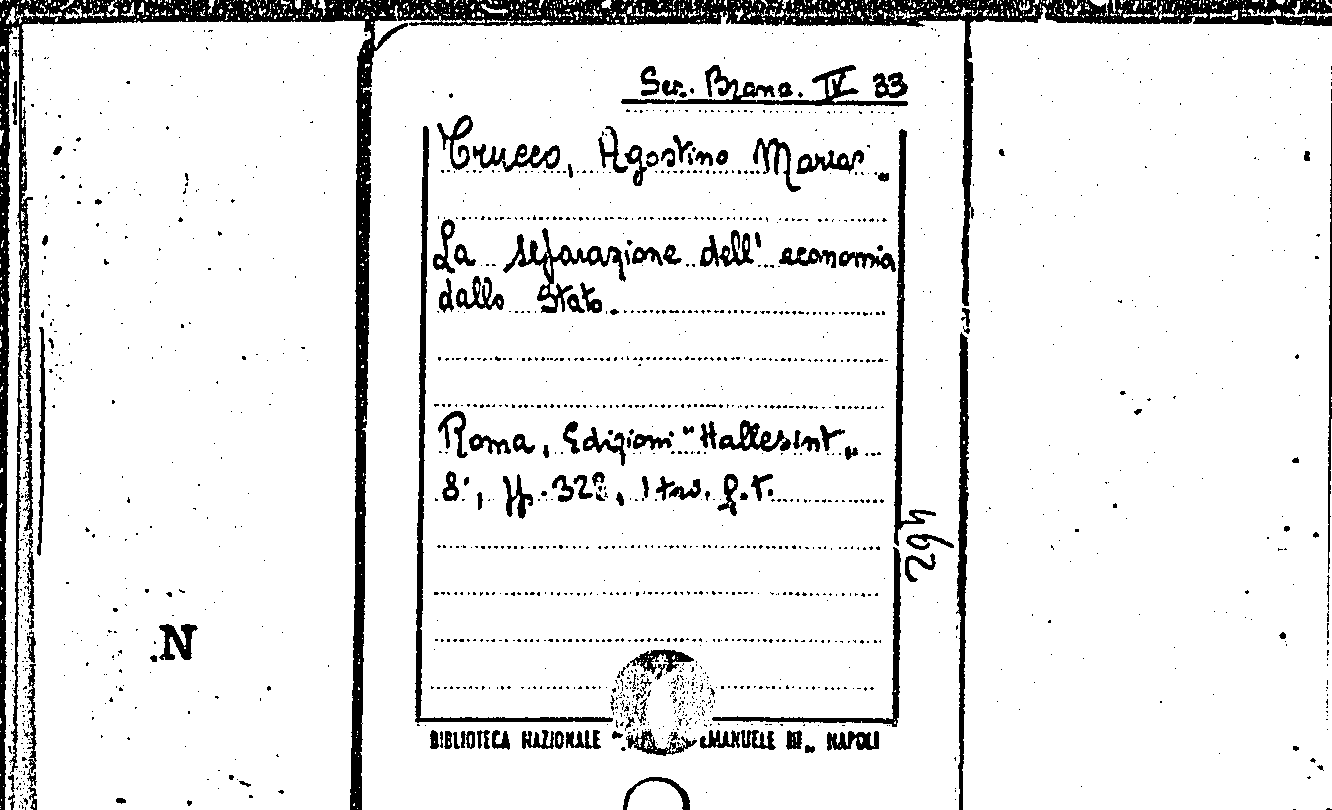 Sez. Brana. IV 33
Trucco, Agostino Maria.
La separazione dell' economia
dallo Stato.
Roma, Edizioni "Hallesint"
8°, pp. 328, 1 tav. f.t.
462
N
BIBLIOTECA NAZIONALE EMANUELE III„ NAPOLI